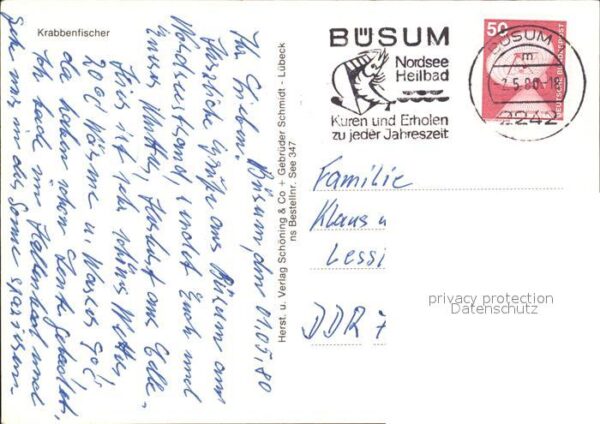 Krabbenfischer
Büsum, den 01.05.80
Ihr Lieben.
Herzliche Grüße aus Büsum am
Nordseestrand, sendet Euch und
Eurer Mutter,
Hier ist sehr schönes Wetter,
20° Wärme u. Wasser 90°,
da haben schon Leute gebadet.
Ich bade im Hallenbad und
gehe in der Sonne spazieren.
Herst. u. Verlag Schöning & Co + Gebrüder Schmidt - Lübeck
ns Bestellnr. See 347
BÜSUM
Nordsee
Heilbad
Kuren und Erholen
zu jeder Jahreszeit
50
BÜSUM
m
-2.5.80.-18
2242
Familie
Klaus u
Lessi
DDR 7
privacy protection
Datenschutz